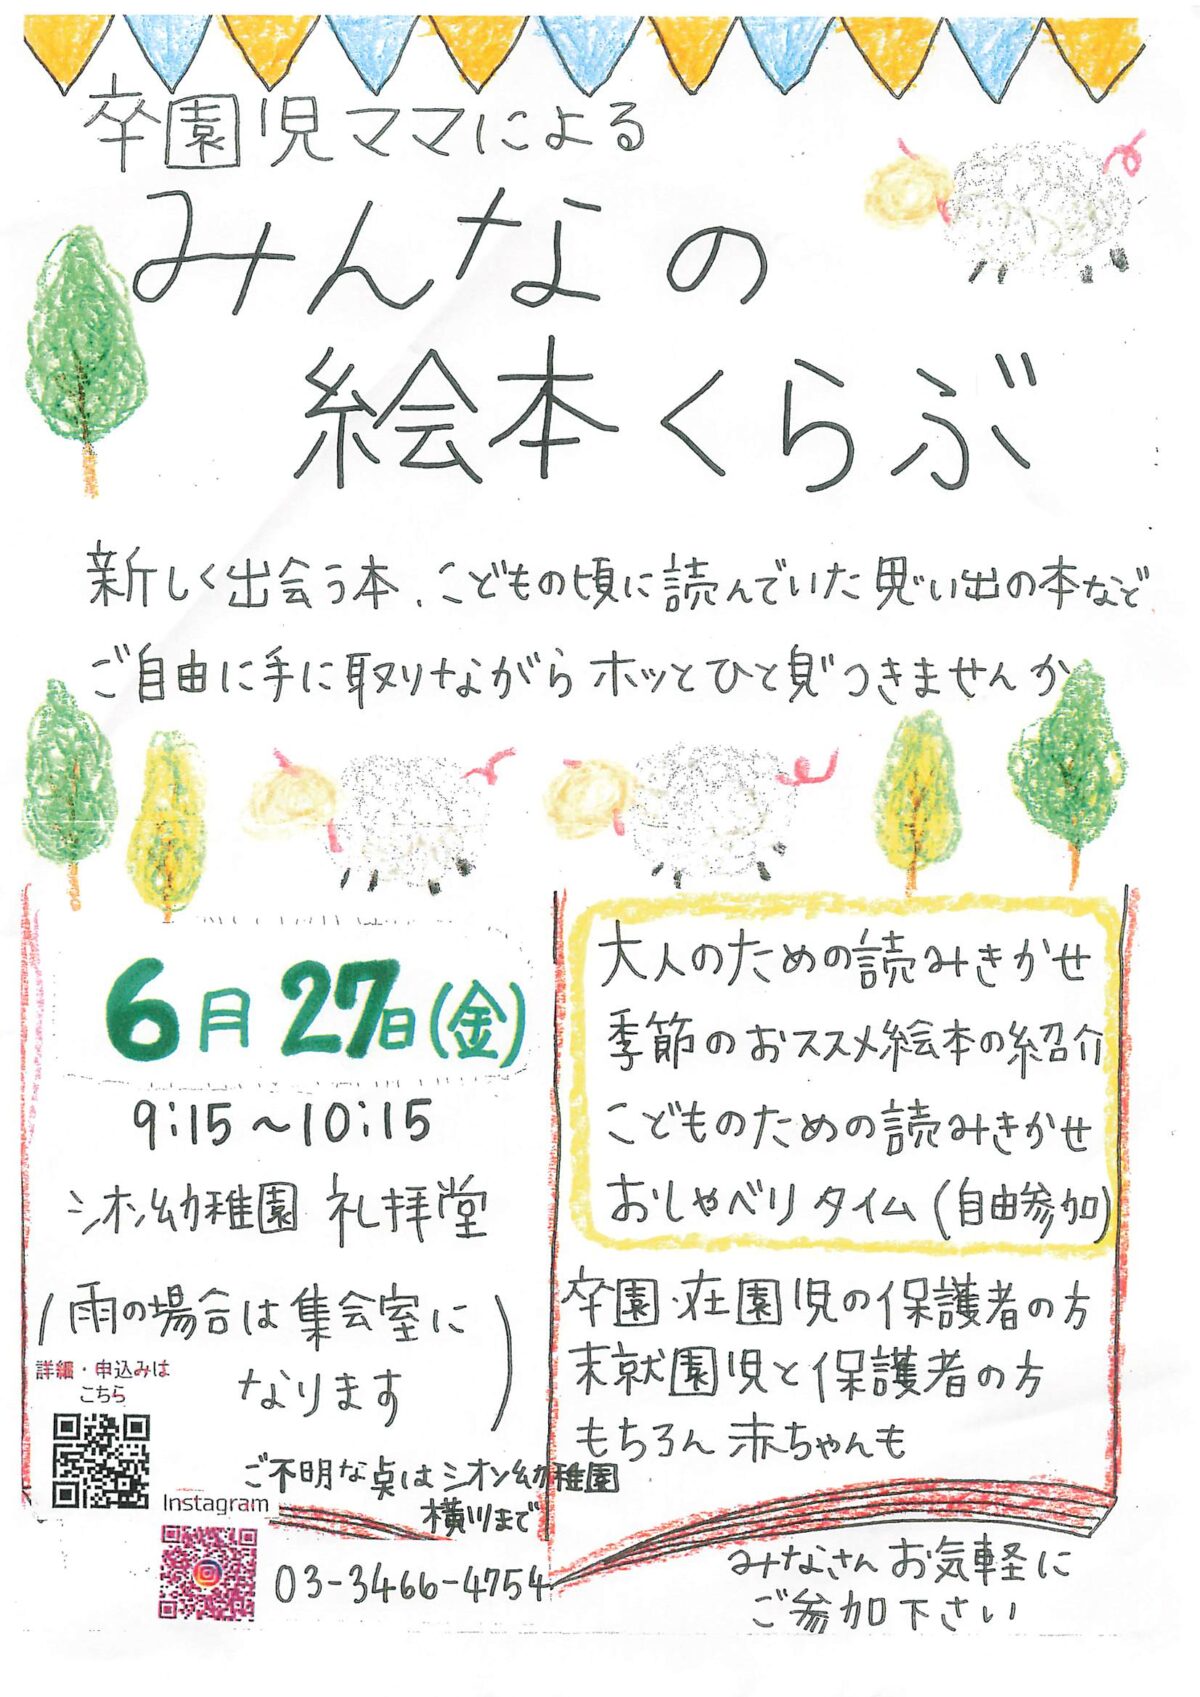 卒園児ママによる
みんなの
絵本くらぶ
新しく出会う本、こどもの頃に読んでいた思い出の本など
ご自由に手に取りながらホッとひと息つきませんか
6月27日(金)
9:15~10:15
シオン幼稚園 礼拝堂
(雨の場合は集会室に
なります)
詳細・申込みは
こちら
Instagram
ご不明な点はシオン幼稚園
横川まで
03-3466-4754
大人のための読みきかせ
季節のおススメ絵本の紹介
こどものための読みきかせ
おしゃべりタイム(自由参加)
卒園・在園児の保護者の方
未就園児と保護者の方
もちろん赤ちゃんも
みなさんお気軽に
ご参加下さい